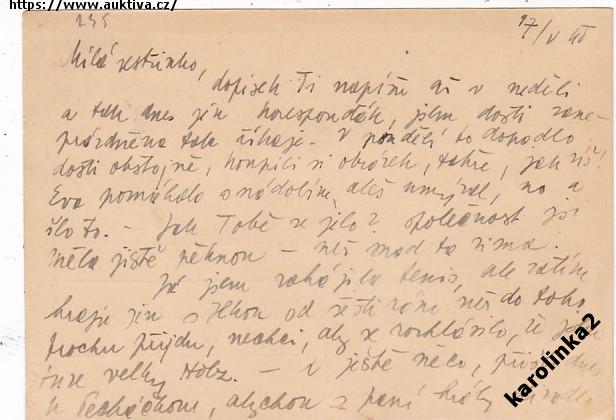 https://www.auktiva.cz/
17/V 40
Milá sestřinko,
dopisek Ti napíši až v neděli
a tak dnes jen korespondák, jsem dosti zane-
prázdněna tak říkajíc. V pondělí to dopadlo
dosti obstojně, koupili si obrázek, takže, jak víš!
Eva pomáhala s nádobím, Aleš umýval, no a
šlo to. – Jak Tobě se jelo? společnost jsi
měla jistě pěknou – než snad ta zima.
Já jsem zahájila tenis, ale zatím
hraji jen s Ilkou od šesti ráno, než do toho
trochu přijdu, nechci, aby se rozhlásilo, že jsem
velký – ještě něco,
k Pecháčkom, abychom s paní
karolinka2